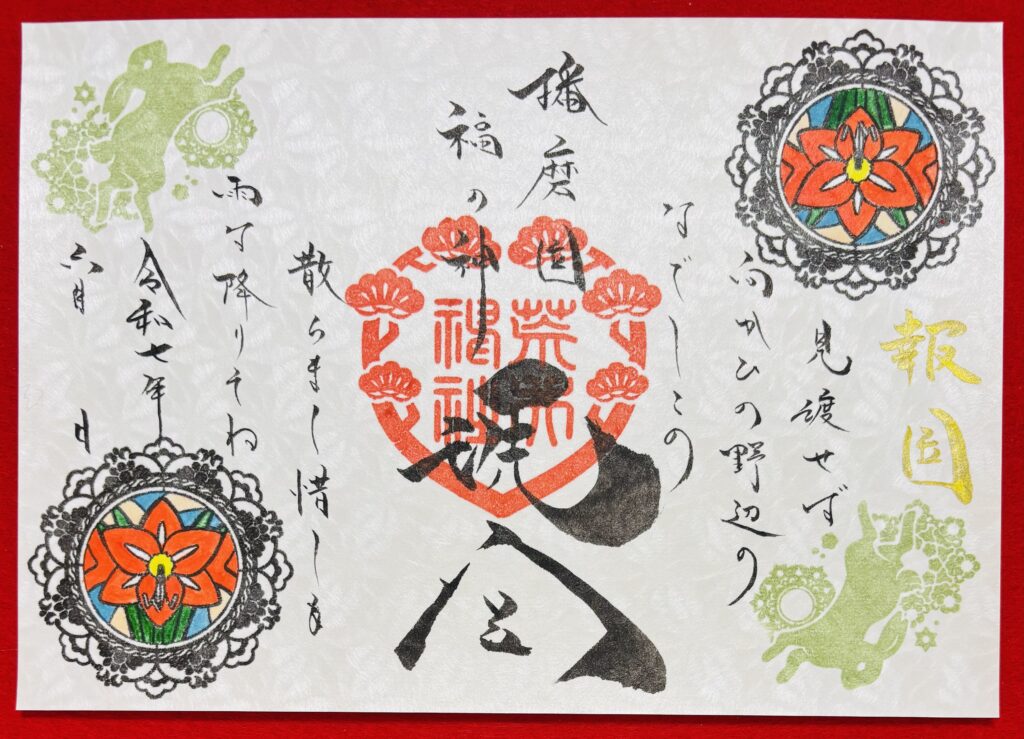 報国
見渡せば
向かひの野辺の
なでしこの
播磨国
福の神
荒井
神社
散らまく惜しも
雨な降りそね
令和七年
六月 日